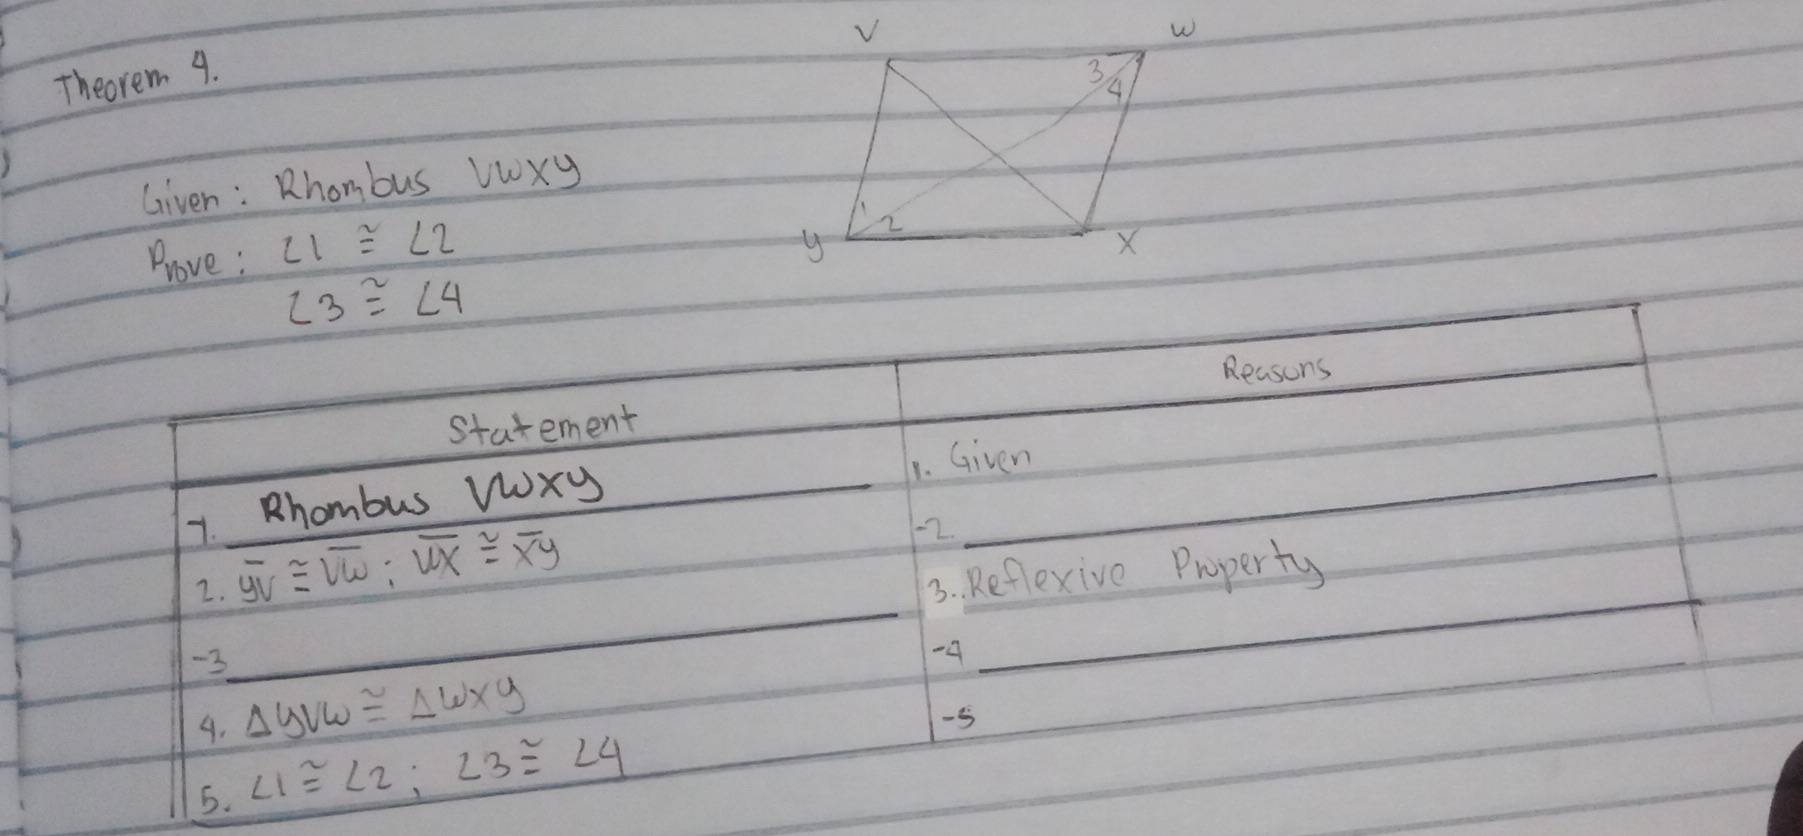 Theorem 4.
V W
3
4
1 2
y X
Given: Rhombus VWXY
Prove: ∠1 ≅ ∠2
∠3 ≅ ∠4
Statement Reasons
1. Rhombus VWXY 1. Given
2. YV ≅ VW ; WX ≅ XY -2.
-3 3. Reflexive Property
4. ΔYVW ≅ ΔWXY -4
5. ∠1 ≅ ∠2 ; ∠3 ≅ ∠4 -5